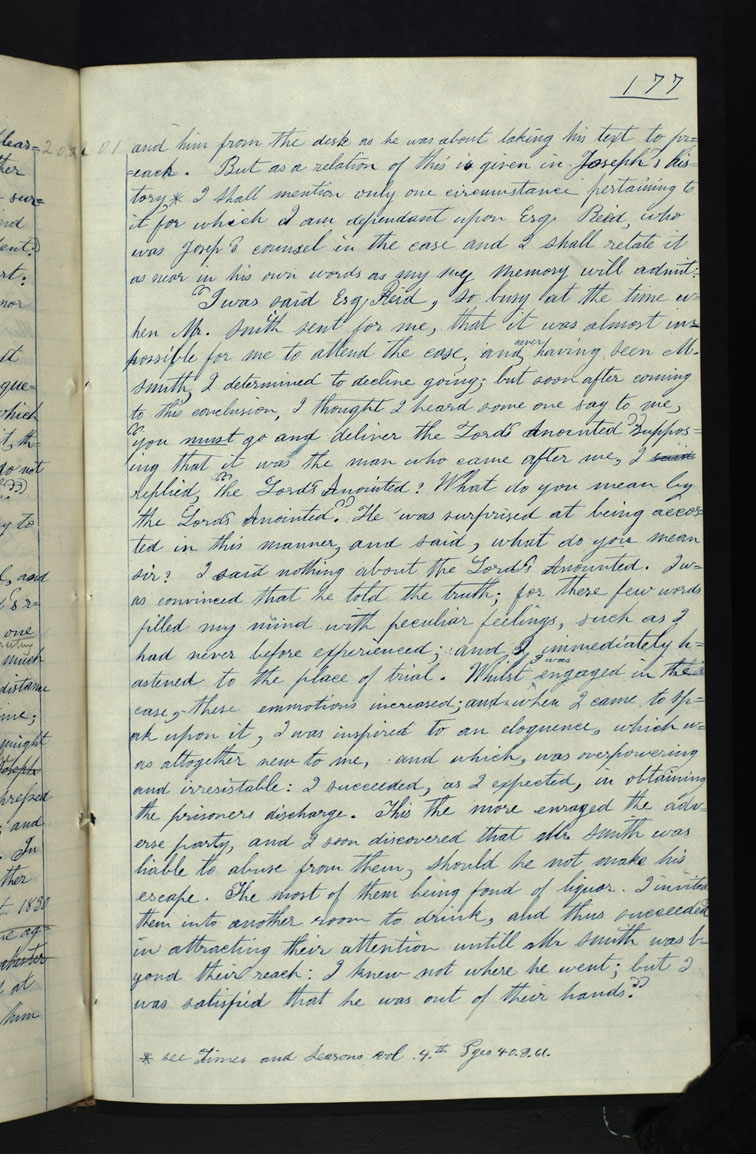 177
and him from the desk as he was about taking his text to pr=
=each. But as a relation of this is given in Joseph's his=
tory* I shall mention only one circumstance pertaining to
it for which I am dependant upon Esq. Reid, who
was Josep's counsel in the case and I shall relate it
as near in his own words as my my memory will admit:
"I was said Esq. Reid, so busy at the time w=
hen Mr. Smith sent for me, that it was almost im=
possible for me to attend the case, and never having seen M.
Smith, I determined to decline going; but soon after coming
to this conclusion, I thought I heard some one say to me,
"you must go and deliver the Lord's Anointed" Suppos=
ing that it was the man who came after me, I said
replied, "the Lord's Anointed? What do you mean by
the Lord's Anointed". He was surprised at being accos=
ted in this manner, and said, what do you mean
sir? I said nothing about the Lord's Anointed. I w=
as convinced that he told the truth; for these few words
filled my mind with peculiar feelings, such as I
had never before experienced; and I, immediately h=
astened to the place of trial. Whilst I was engaged in the
case, these emmotions increased; and when I came to sp=
ak upon it, I was inspired to an eloquence, which w=
as altogether new to me, and which, was overpowering
and irresistable: I succeeded, as I expected, in obtaining
the prisoners discharge. This the more enraged the adv=
erse party, and I soon discovered that Mr Smith was
liable to abuse from them, should he not make his
escape. The most of them being fond of liquor. I invited
them into another room to drink, and thus succeeded
in attracting their attention untill Mr Smith was b=
yond their reach: I knew not where he went; but I
was satisfied that he was out of their hands."
* see Times and Seasons vol. 4.th Pges 40. & 61.